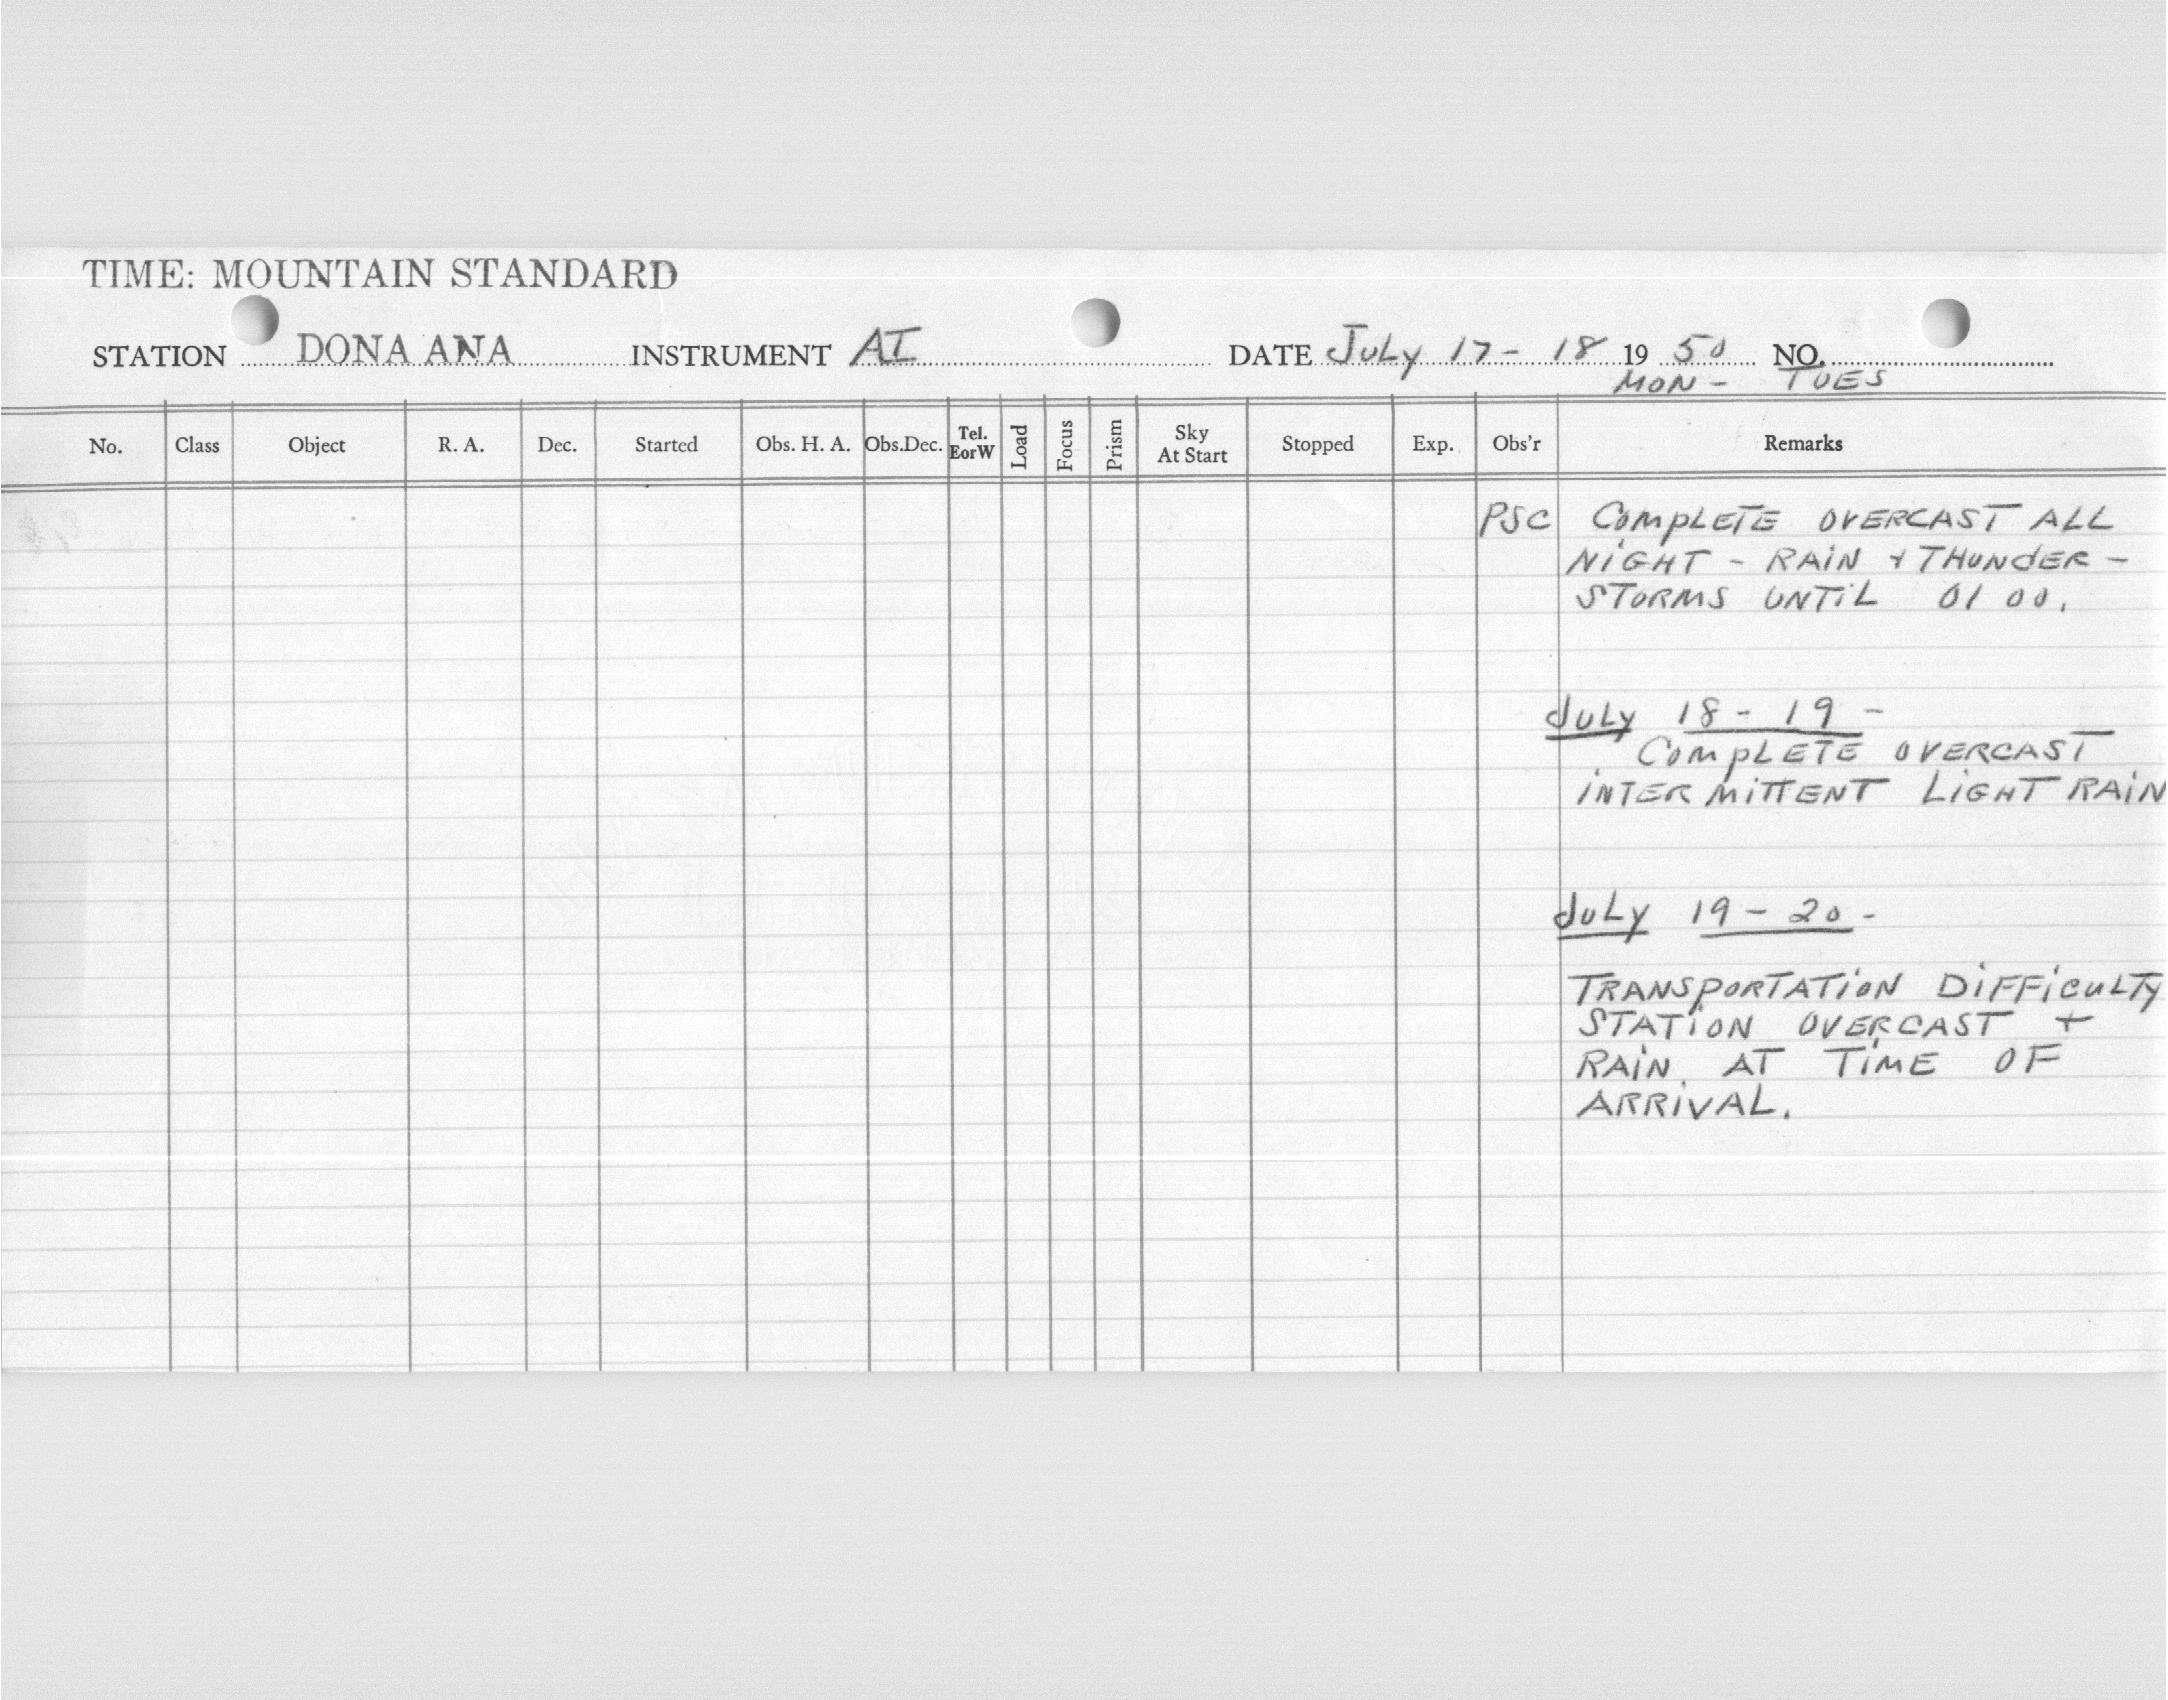 TIME: MOUNTAIN STANDARD
STATION DONA ANA INSTRUMENT AI DATE JULY 17 - 18 19 50 NO.
MON - TUES
No. Class Object R. A. Dec. Started Obs. H. A. Obs.Dec. Tel. EorW Load Focus Prism Sky At Start Stopped Exp. Obs'r Remarks
PSC COMPLETE OVERCAST ALL
NIGHT - RAIN + THUNDER -
STORMS UNTIL 01 00.
JULY 18 - 19 -
COMPLETE OVERCAST
INTERMITTENT LIGHT RAIN
JULY 19 - 20 -
TRANSPORTATION DIFFICULTY
STATION OVERCAST +
RAIN AT TIME OF
ARRIVAL.